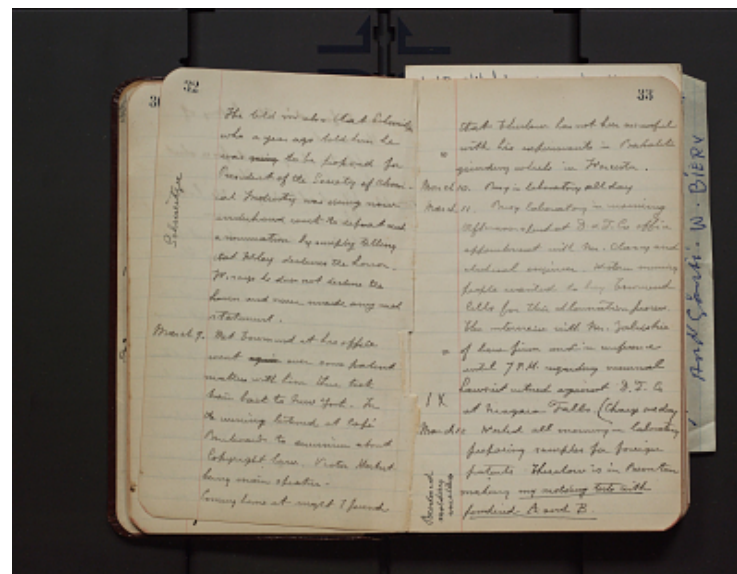 32
He told me also that Schweitzer
who a year ago told him he
was going to be proposed for
President of the Society of Chem-
ical Industry was using now
underhand work to defeat such
a nomination by simply telling
that Wiley declines the honor.
W. says he does not decline the
honor and never made any such
statement.
Schweitzer
March 9. Met Townsend at his office
went again over some patent
matters with him then took
train back to New York. In
the evening listened at Café
Boulevard to discussion about
Copyright law. Victor Herbert
being main speaker.
Coming home at night I found
33
that Thurlow has not been successful
with his experiments in Bakelite
grinding wheels in Worcester.
March 10. Busy in laboratory all day
March 11. Busy laboratory in morning
Afternoon spent at D. & F. Co office
appointment with Mr. and
electrical engineer. Western mining
people wanted to buy Townsend
Cells for this chlorination process.
Then interview with Mr.
of law firm and in conference
until 7 P.M. regarding
Lawsuit against D. F. Co
at Niagara Falls. (Charge one day
March 12 Worked all morning in laboratory
preparing samples for foreign
patents. Thurlow is in
making my molding tests with
powdered A and B.
molding
30
And Gönti. W. BIERY